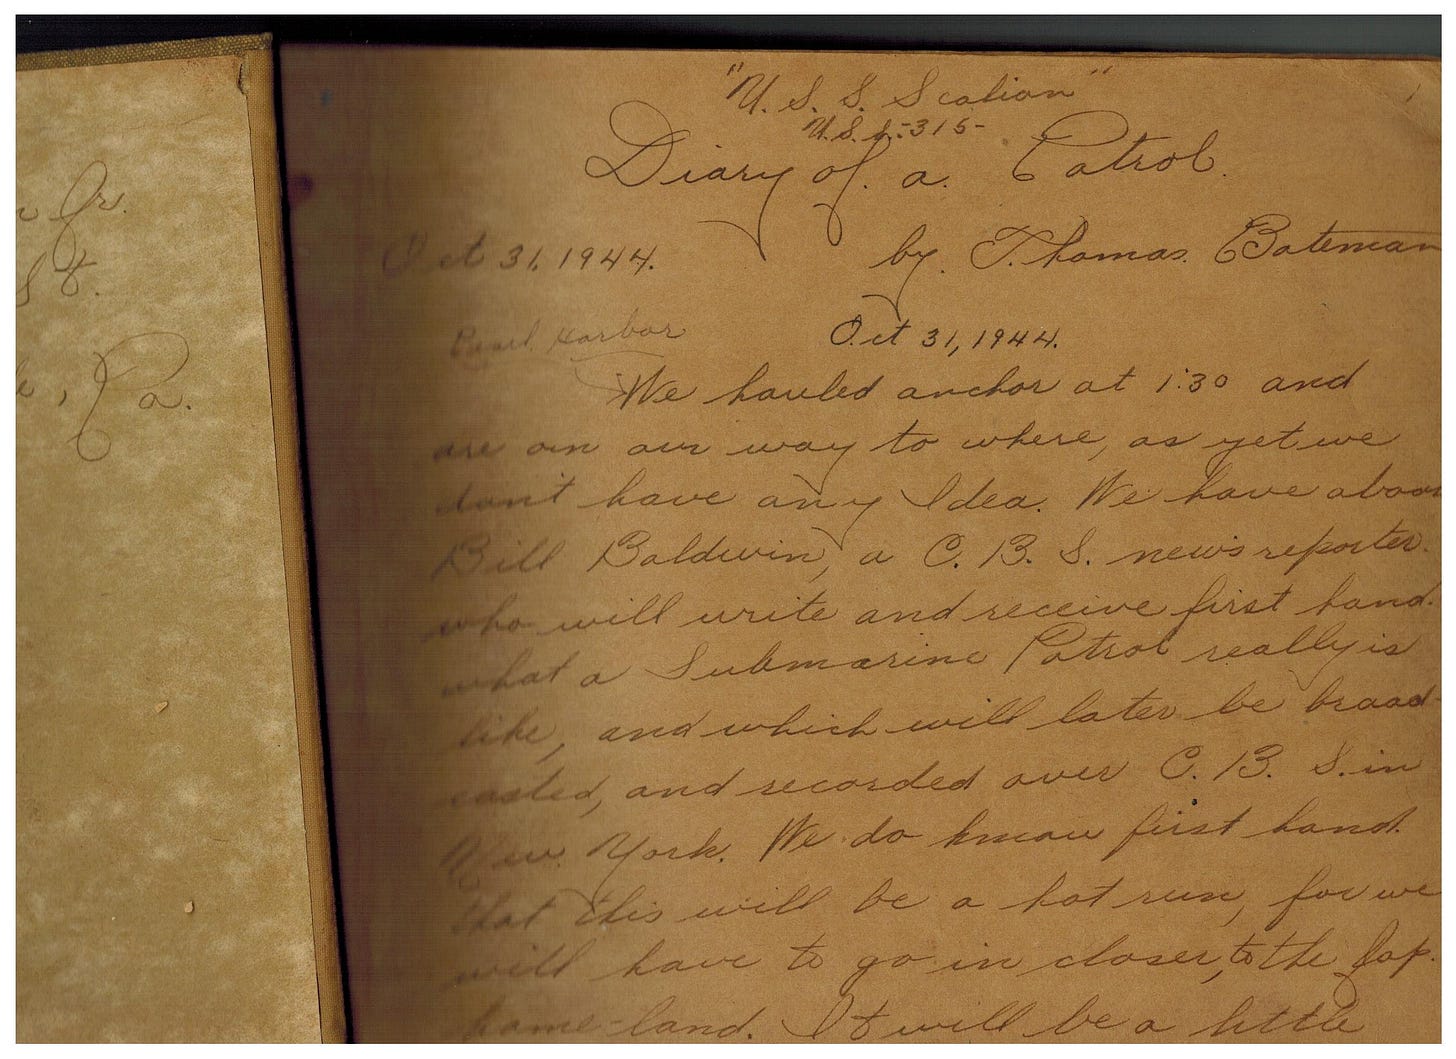 r Jr.
St.
e, Pa.
"U. S. S. Scalion"
U.S.S.-315-
Diary of. a. Patrol.
Oct 31, 1944.
by. Thomas. Bateman
Pearl Harbor
Oct 31, 1944.
We hauled anchor at 1:30 and
are on our way to where, as yet we
don't have any Idea. We have aboar
Bill Baldwin, a C. B. S. news reporter.
who will write and receive first hand.
what a Submarine Patrol really is
like, and which will later be broad-
casted, and recorded over C. B. S. in
New York. We do know first hand.
that this will be a hot run, for we
will have to go in closer, to the Jap.
home-land. It will be a little